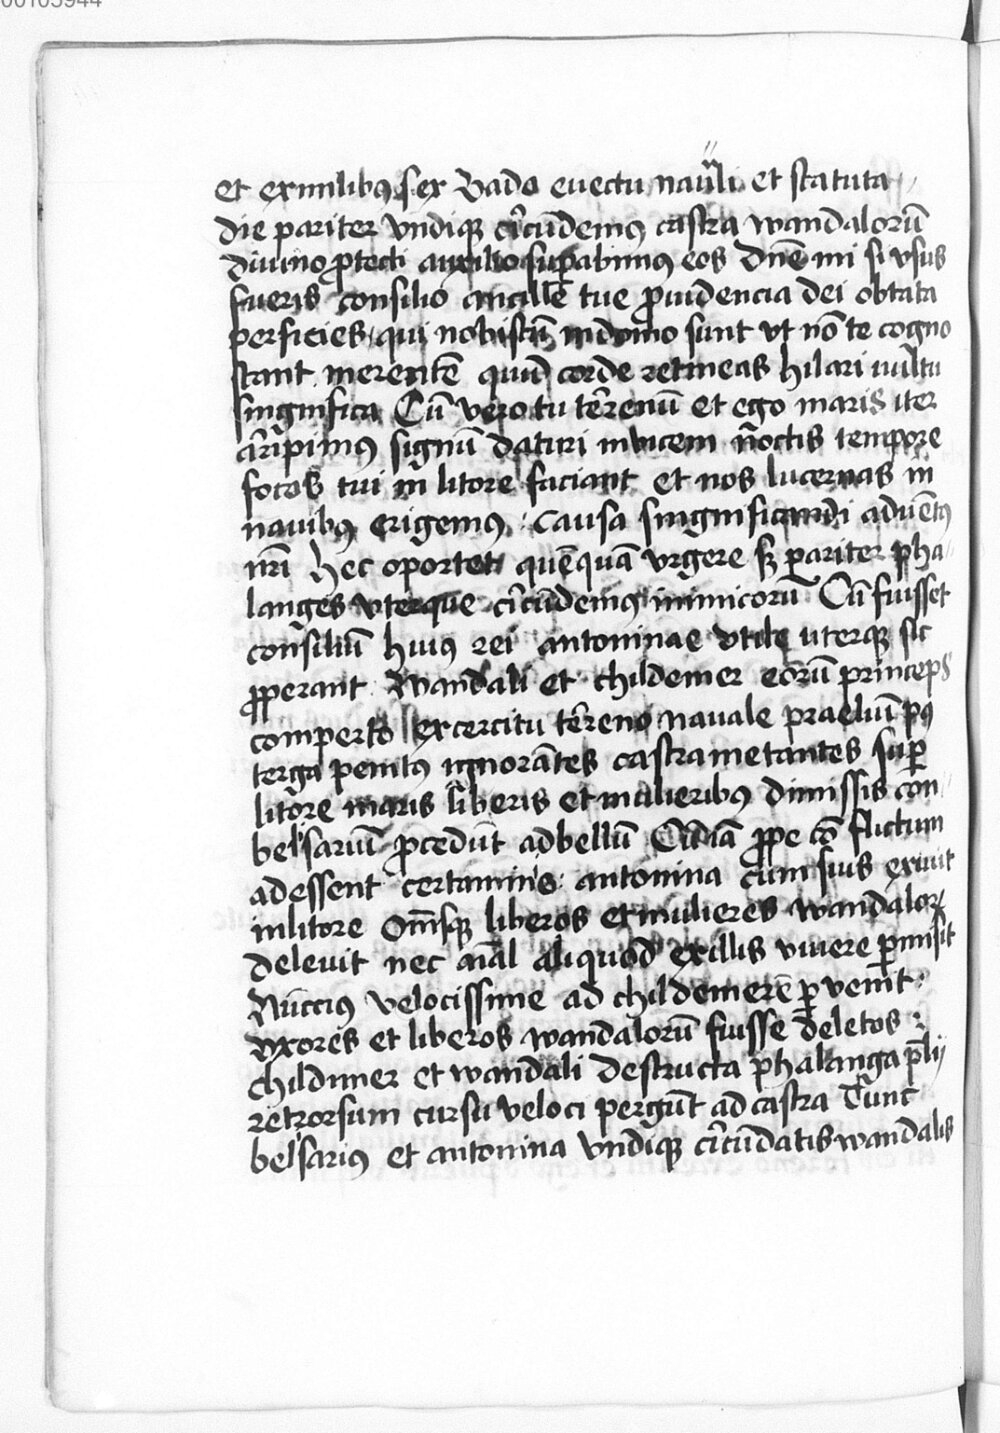 00105944
et ex milibus sex Vado euectu nauali et statuta
die pariter vndiqꝫ circūdemꝰ castra wandalorū
diuino ꝓtecti auxilio suꝑabimus eos Dn̄e mi si vsus
fueris consilio ancille tue ꝓuidencia dei obtata
perficies qui nobiscū in domo sunt vt nō te cogno
scant merentē quid corde retineas hilari uultu
singnifica Cū vero tu terrenū et ego maris iter
arripimꝰ signū daturi inuicem noctis tempore
focos tui in litore faciant et nos lucernas in
nauibꝰ erigemꝰ causa singnificandi aduētꝰ
nr̄i Hec oportet quēquā vrgere sꝫ pariter pha
langes vterque circūdemꝰ inimicorū Cū fuisset
consiliū huiꝰ rei antoninae vtile uterqꝫ sic
ꝓperant Wandali et childemer eorū princeps
comperto excercitu terreno nauale praeliū pꝰ
terga penitꝰ ingnorātes castrametantes suꝑ
litore maris liberis et mulieribꝰ dimissis con
belsariū ꝓcedūt ad bellū Cū iā ꝓpe cō flictum
adessent certaminis antonina cum suis exiuit
in litore Om̄sqꝫ liberos et mulieres wandaloꝝ
deleuit nec aīal aliquod ex illis viuere ꝑmisit
Nūccius velocissime ad childemerē ꝑvenit
vxores et liberos wandalorū fuisse deletos
childimer et wandali destructa phalanga p̄lij
retrorsum cursu veloci pergūt ad castra Tunc
belsariꝰ et antonina vndiqꝫ circūdatis wandalis